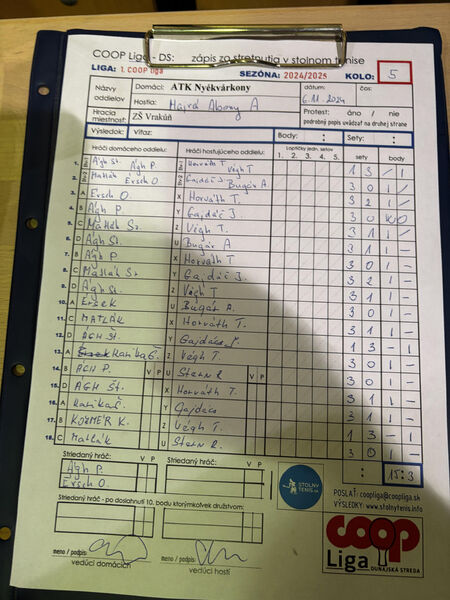 COOP Liga - DS: zápis zo stretnutia v stolnom tenise
LIGA: 1. COOP liga SEZÓNA: 2024/2025 KOLO: 5
Názvy oddielov Domáci: ATK Nyékvárkony dátum: 6.11 2024 čas:
Hostia: Abony A
Hracia miestnosť: ZŠ Vrakúň Protest: áno / nie
podrobný popis uvádzať na druhej strane
Výsledok: Víťaz: Body: : Sety: :
Hráči domáceho oddielu: Hráči hosťujúceho oddielu: Loptičky jedn. setov sety body
1. 2. 3. 4. 5.
1. Ágh St. Ágh P. Horváth T. Végh T. 1 3 - 1
2. Matlák Érsch O. Gajdáč J. Bugár A 3 0 1
3. A Érsch O. X Horváth T. 3 2 1
4. B Ágh P. Y Gajdáč J. 3 0
5. C Matlák St. Z Végh T. 3 1 1
6. D Ágh St. U Bugár A 3 1 1 -
7. B Ágh P X Horváth T 3 0 1 -
8. C Matlák St Y Gajdáč J. 3 2 1 -
9. D Ágh St. Z Végh T 3 1 1 -
10. A Érsek U Bugár A. 3 0 1 -
11. C MATLÁK X Horváth T. 3 1 1 -
12. D AGH St. Y 1 3 - 1
13. A Karika Č. Z Végh T. 3 0 1 -
14. B AGH P. V P U Stern R V P 3 0 1 -
15. D AGH Št. X Horváth T. 3 1 1 -
16. A Karika Č. Y Gajdács 3 1 1 -
17. B K. Z Végh T 1 3 - 1
18. C Matlák U Stern R. 3 0 1 -
: 15:3
Striedaný hráč: V P Striedaný hráč: V P
Ágh P.
Érsch O.
STOLNÝ
TENIS
Striedaný hráč - po dosiahnutí 10. bodu ktorýmkoľvek družstvom:
POSLAŤ: coopliga@coopliga.sk
VÝSLEDKY: www.stolnytenis.info
meno / podpis meno / podpis
vedúci domácich vedúci hostí
coop
Liga
DUNAJSKÁ STREDA